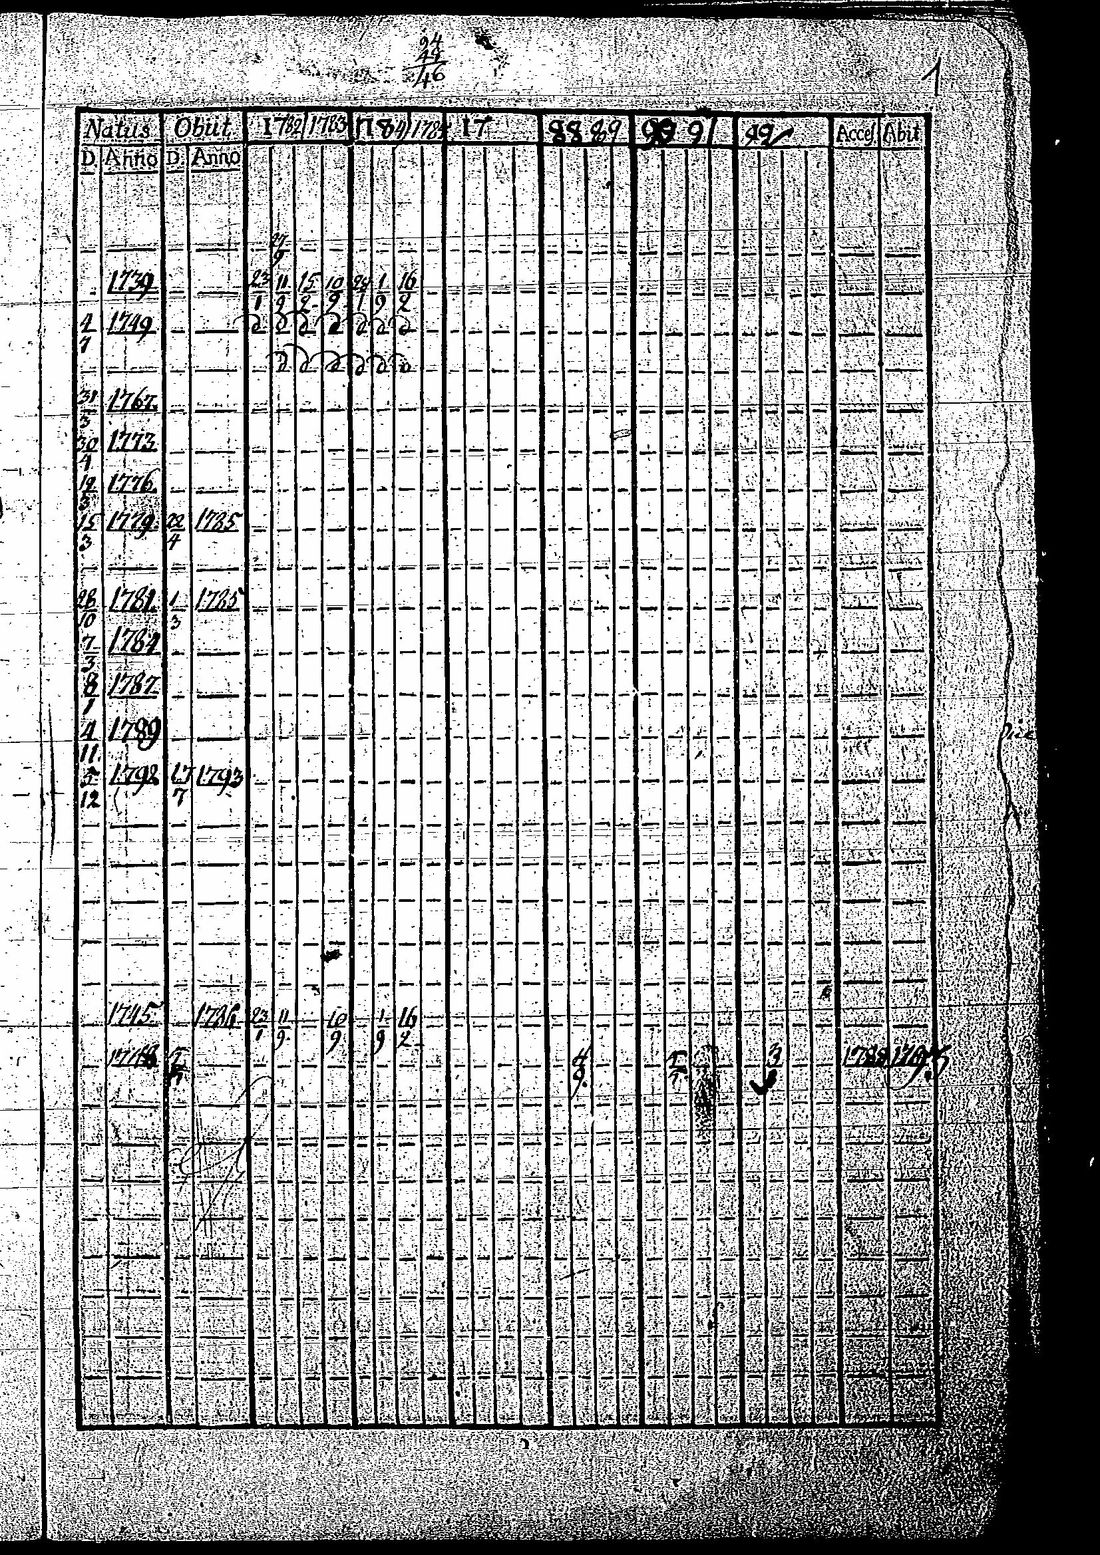 94
48
46
1
Natus Obiit 1782 1783 1784 178 17 88 89 90 91 92 Acceſ Abit
D. Anno D. Anno
27
9
1739 23 11 15 10 24 1 16
1 9 2 9 1 9 2
4 1749
7
31 1767
3
30 1773
4
19 1776
3
15 1779 22 1785
3 4
28 1781 1 1785
10 3
7 1784
3
8 1787
1
4 1789
11
5 1792 17 1793
12 7
1745 1786 23 11 10 1 16
1 9 9 9 2
4 5 3 1788
9 7